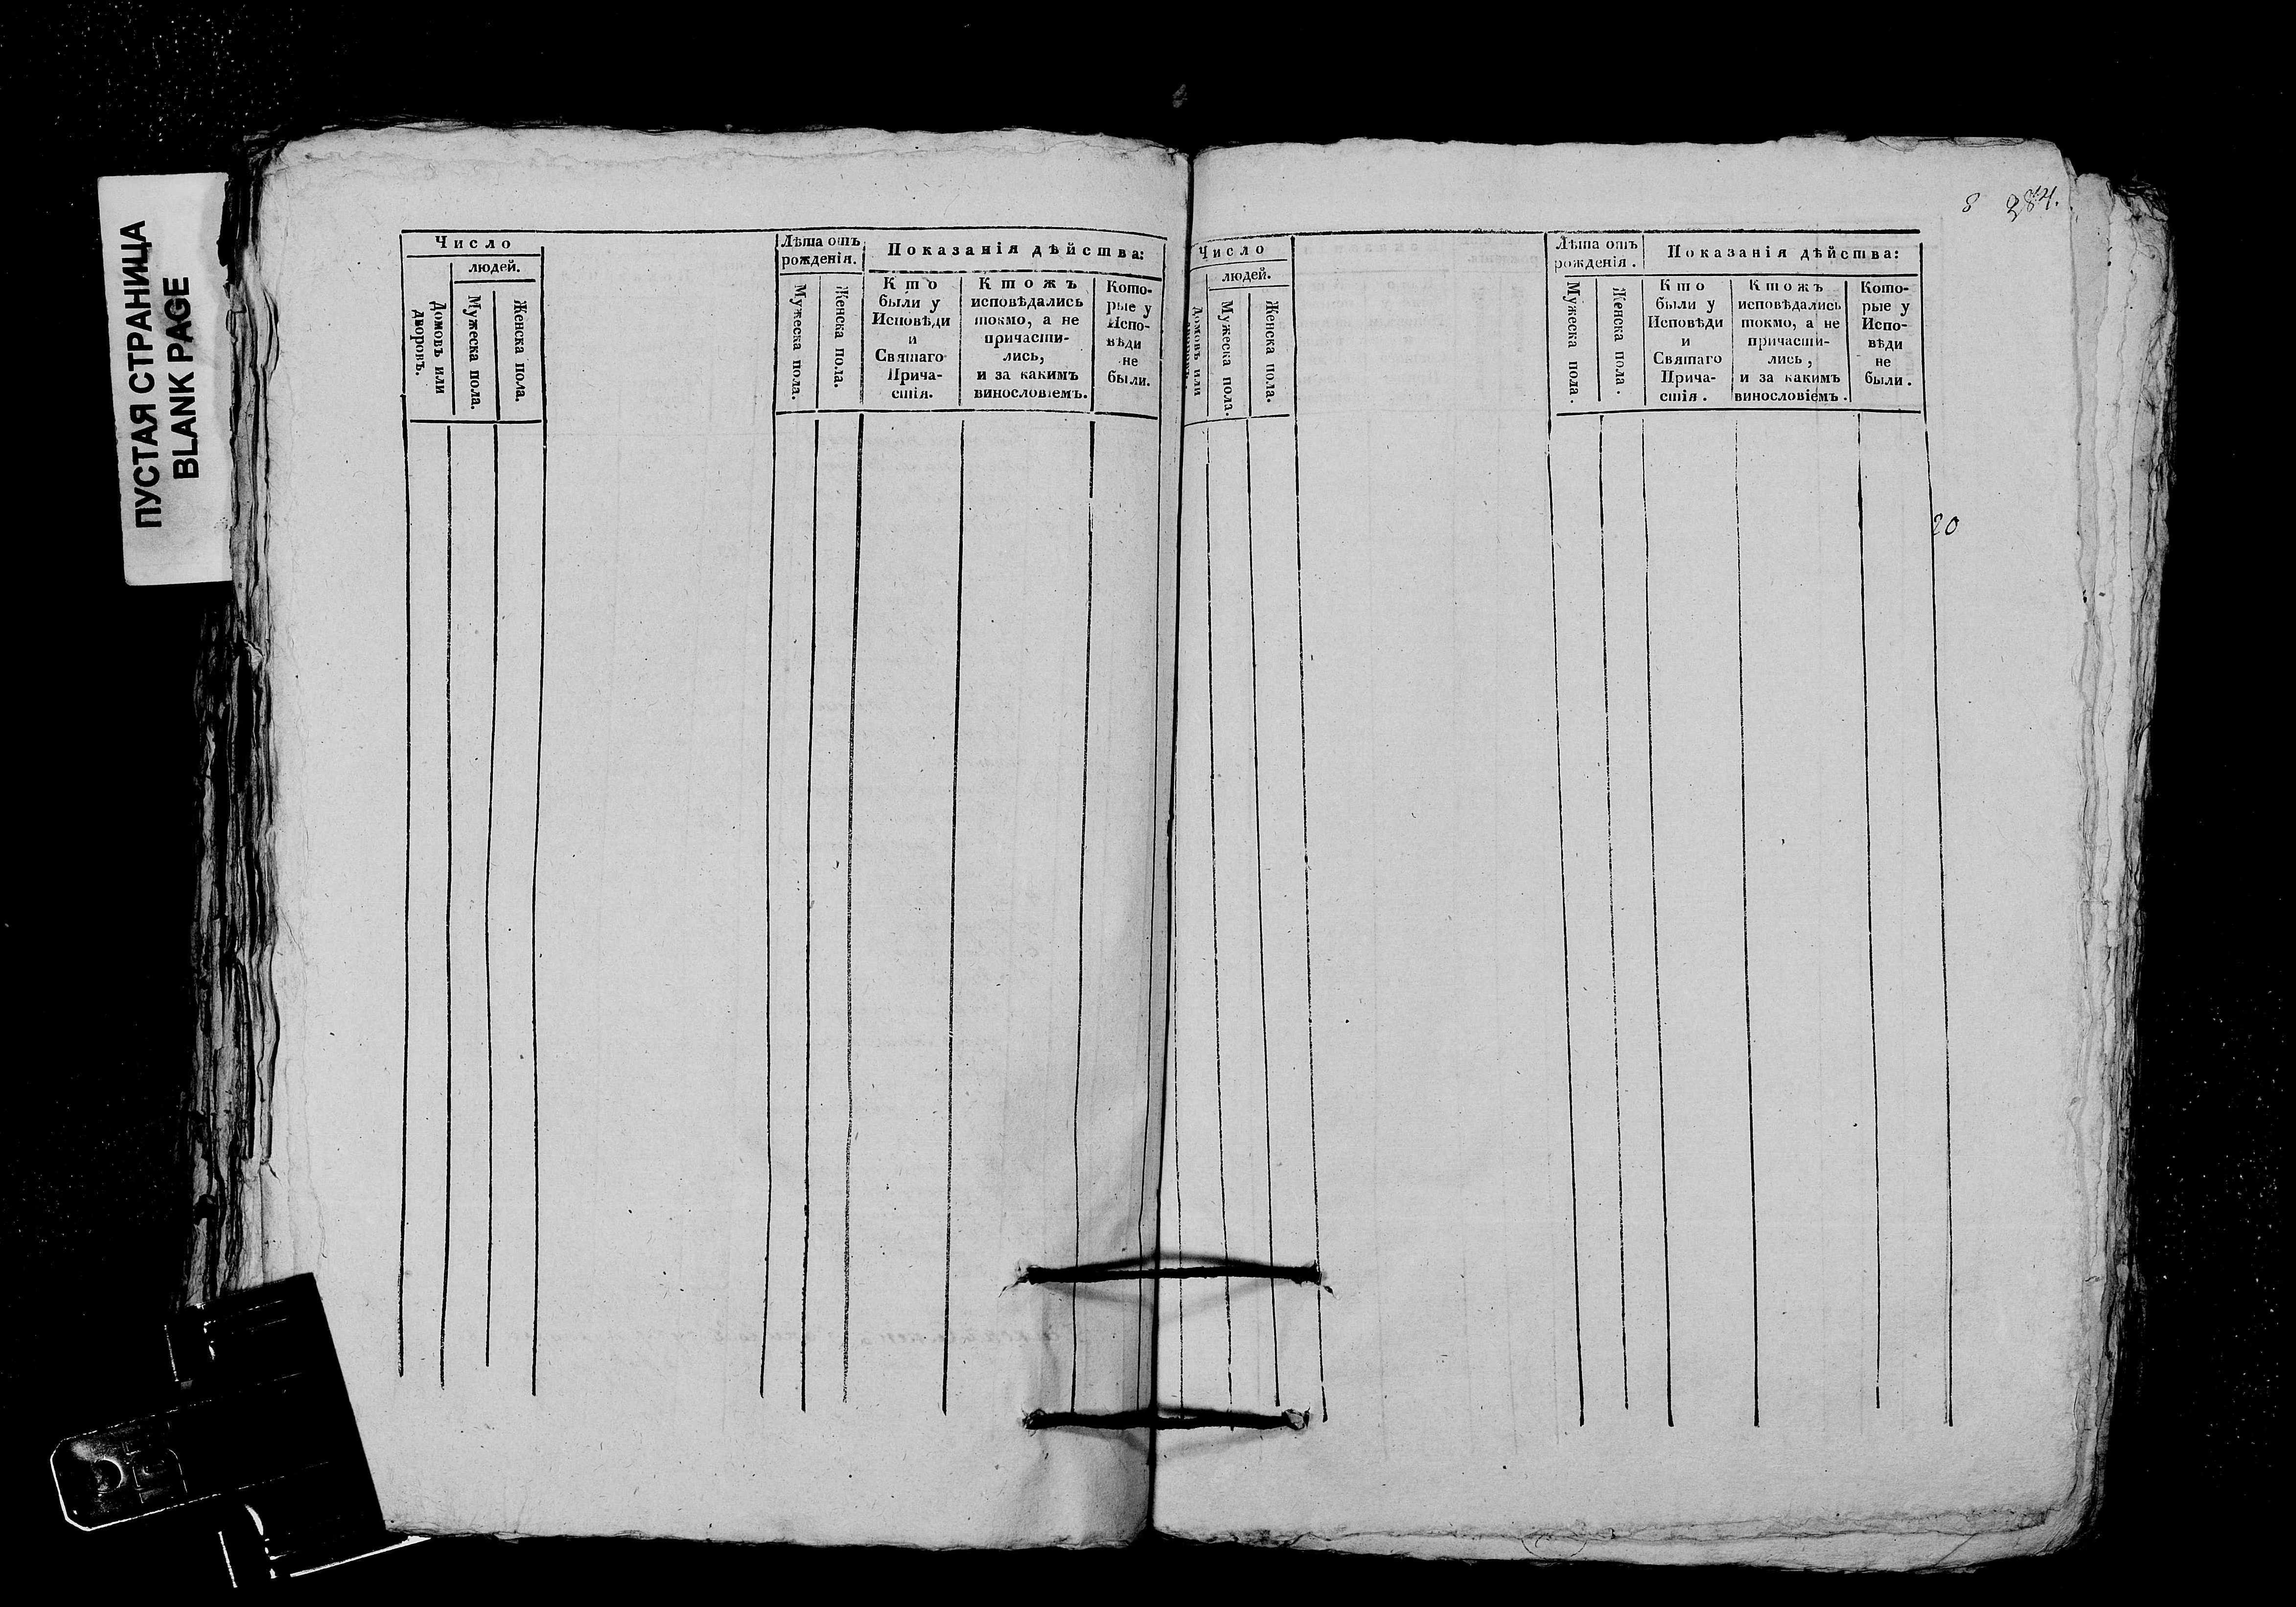 ПУСТАЯ СТРАНИЦА
BLANK PAGE
Число
людей.
Домовъ или
дворовъ.
Мужеска пола.
Женска пола.
Лѣта отъ
рожденія.
Мужеска пола.
Женска пола.
Показанія дѣйства:
Кто
были у
Исповѣди
и
Святаго
Прича-
стія.
Ктожъ
исповѣдались
токмо, а не
причасти-
лись,
и за какимъ
винословіемъ.
Кото-
рые у
Испо-
вѣди
не
были.
8 284.
Число
людей.
Домовъ или
дворовъ.
Мужеска пола.
Женска пола.
Лѣта отъ
рожденія.
Мужеска пола.
Женска пола.
Показанія дѣйства:
Кто
были у
Исповѣди
и
Святаго
Прича-
стія.
Ктожъ
исповѣдались
токмо, а не
причасти-
лись,
и за какимъ
винословіемъ.
Кото-
рые у
Испо-
вѣди
не
были.
20